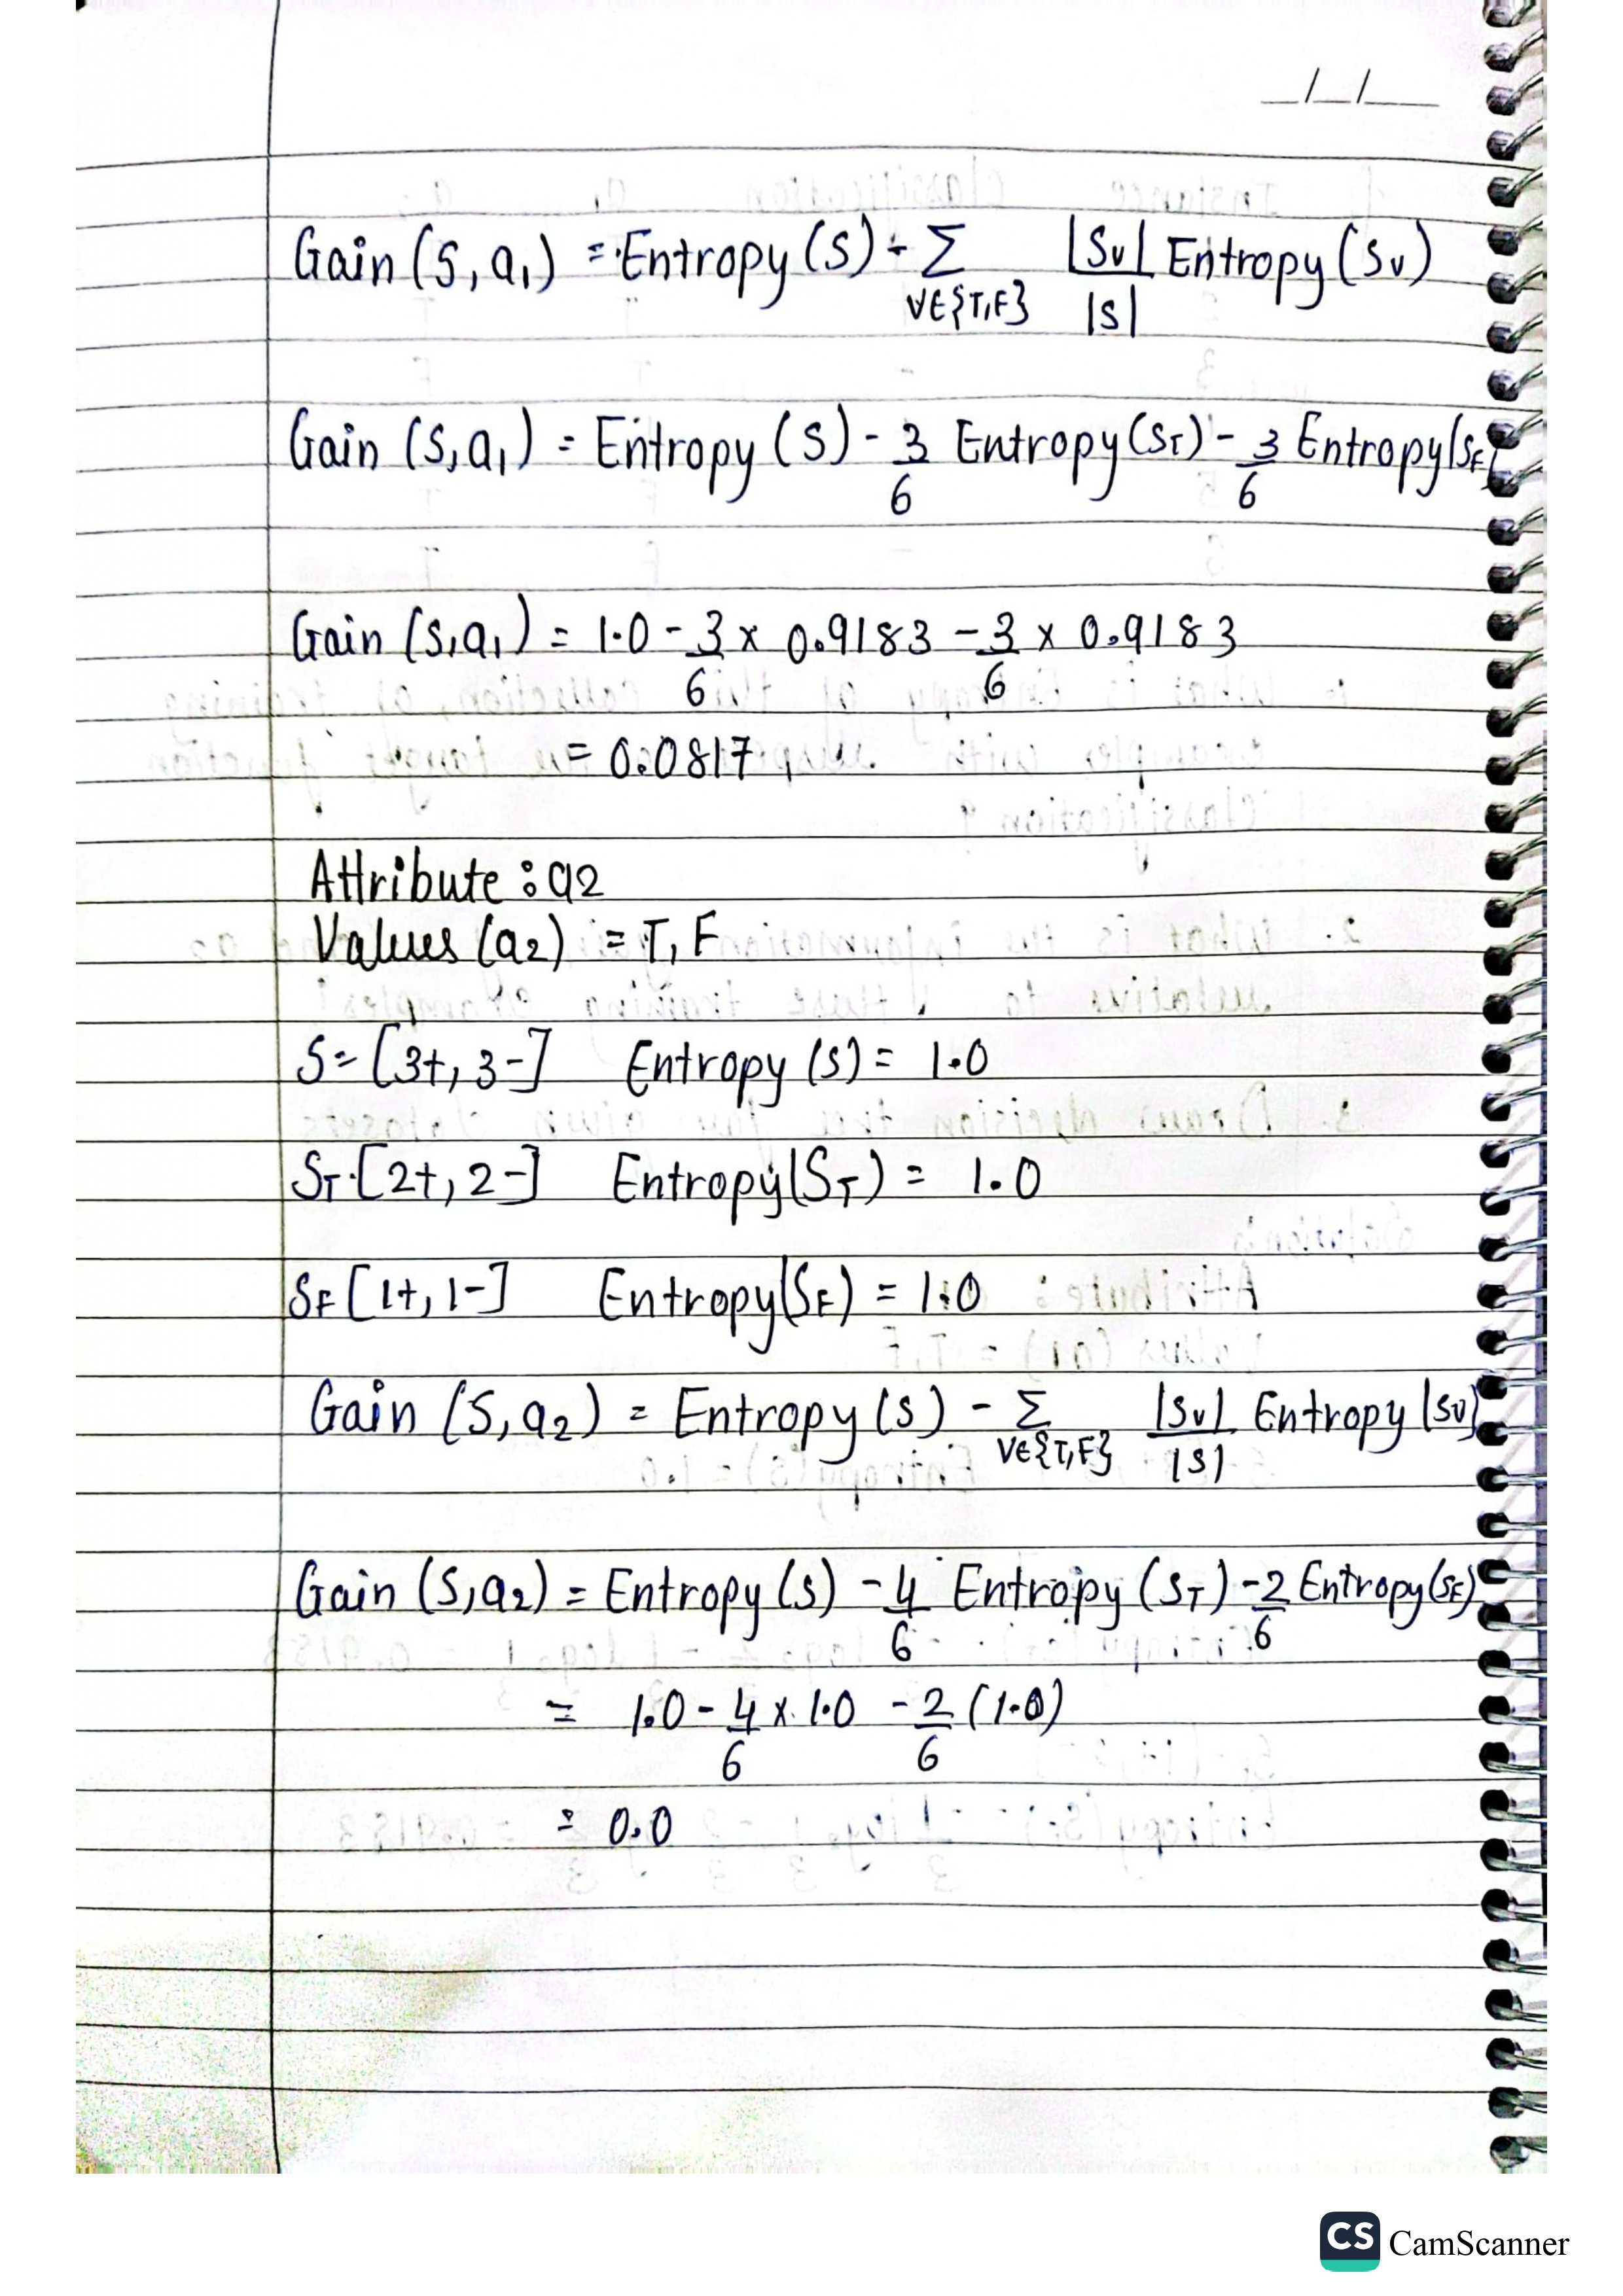 __/__/____
Gain (S, a₁) = Entropy (S) - Σ v∈{T,F} |Sv|/|S| Entropy (Sv)
Gain (S, a₁) = Entropy (S) - 3/6 Entropy (ST) - 3/6 Entropy (SF)
Gain (S, a₁) = 1.0 - 3/6 x 0.9183 - 3/6 x 0.9183
= 0.0817
Attribute : a2
Values (a2) = T, F
S = [3+, 3-] Entropy (S) = 1.0
ST [2+, 2-] Entropy (ST) = 1.0
SF [1+, 1-] Entropy (SF) = 1.0
Gain (S, a₂) = Entropy (S) - Σ v∈{T,F} |Sv|/|S| Entropy (Sv)
Gain (S, a₂) = Entropy (S) - 4/6 Entropy (ST) - 2/6 Entropy (SF)
= 1.0 - 4/6 x 1.0 - 2/6 (1.0)
= 0.0
CS CamScanner